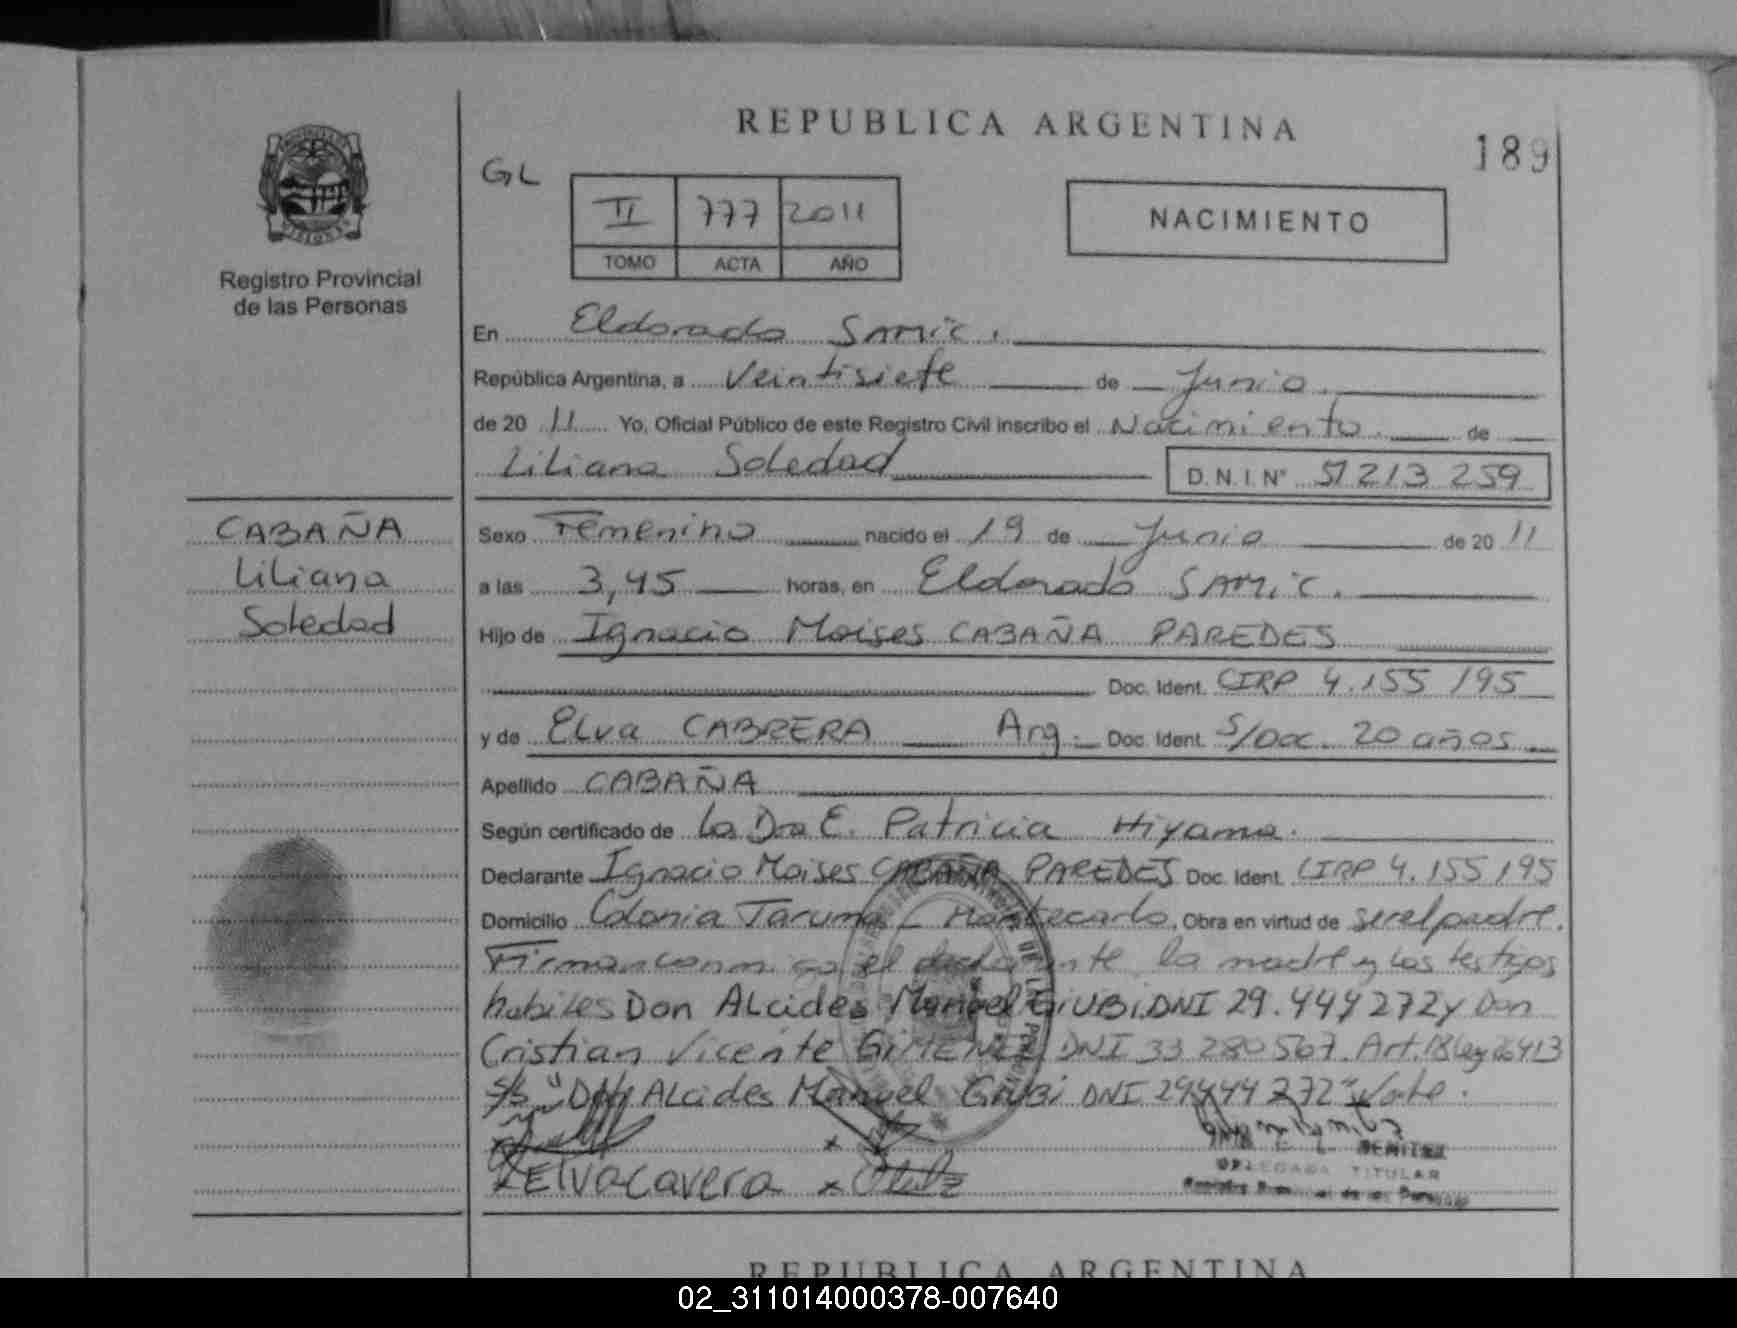 REPUBLICA ARGENTINA
189
GL
II 777 2011
TOMO ACTA AÑO
NACIMIENTO
Registro Provincial
de las Personas
En Eldorado SAMIC.
República Argentina, a Veintisiete de Junio.
de 20 11 Yo, Oficial Público de este Registro Civil inscribo el Nacimiento. de
Liliana Soledad D.N.I.N° 51 213 259
CABAÑA
Liliana
Soledad
Sexo Femenino nacido el 19 de Junio de 20 11
a las 3,45 horas, en Eldorado SAMIC.
Hijo de Ignacio Moises CABAÑA PAREDES
Doc. Ident. CIRP 4.155 195
y de Elva CABRERA Arg. Doc. Ident. S/Doc. 20 años
Apellido CABAÑA
Según certificado de la Dra E. Patricia Hiyama.
Declarante Ignacio Moises CABAÑA PAREDES Doc. Ident. CIRP 4.155 195
Domicilio Colonia Taruma - Montecarlo. Obra en virtud de ser el padre.
Firman conmigo el declarante la madre y los testigos
habiles Don ALcides Manuel GIUBI DNI 29.444 272 y Don
Cristian Vicente GIMENEZ DNI 33 280 567. Art. 18 Ley 26413
S/b "Don ALcides Manuel GIUBI DNI 29444 272" Vale.
x
x Elvacavera x
BENITEZ
DELEGADA TITULAR
Registro Provincial de las Personas
REPUBLICA ARGENTINA
02_311014000378-007640